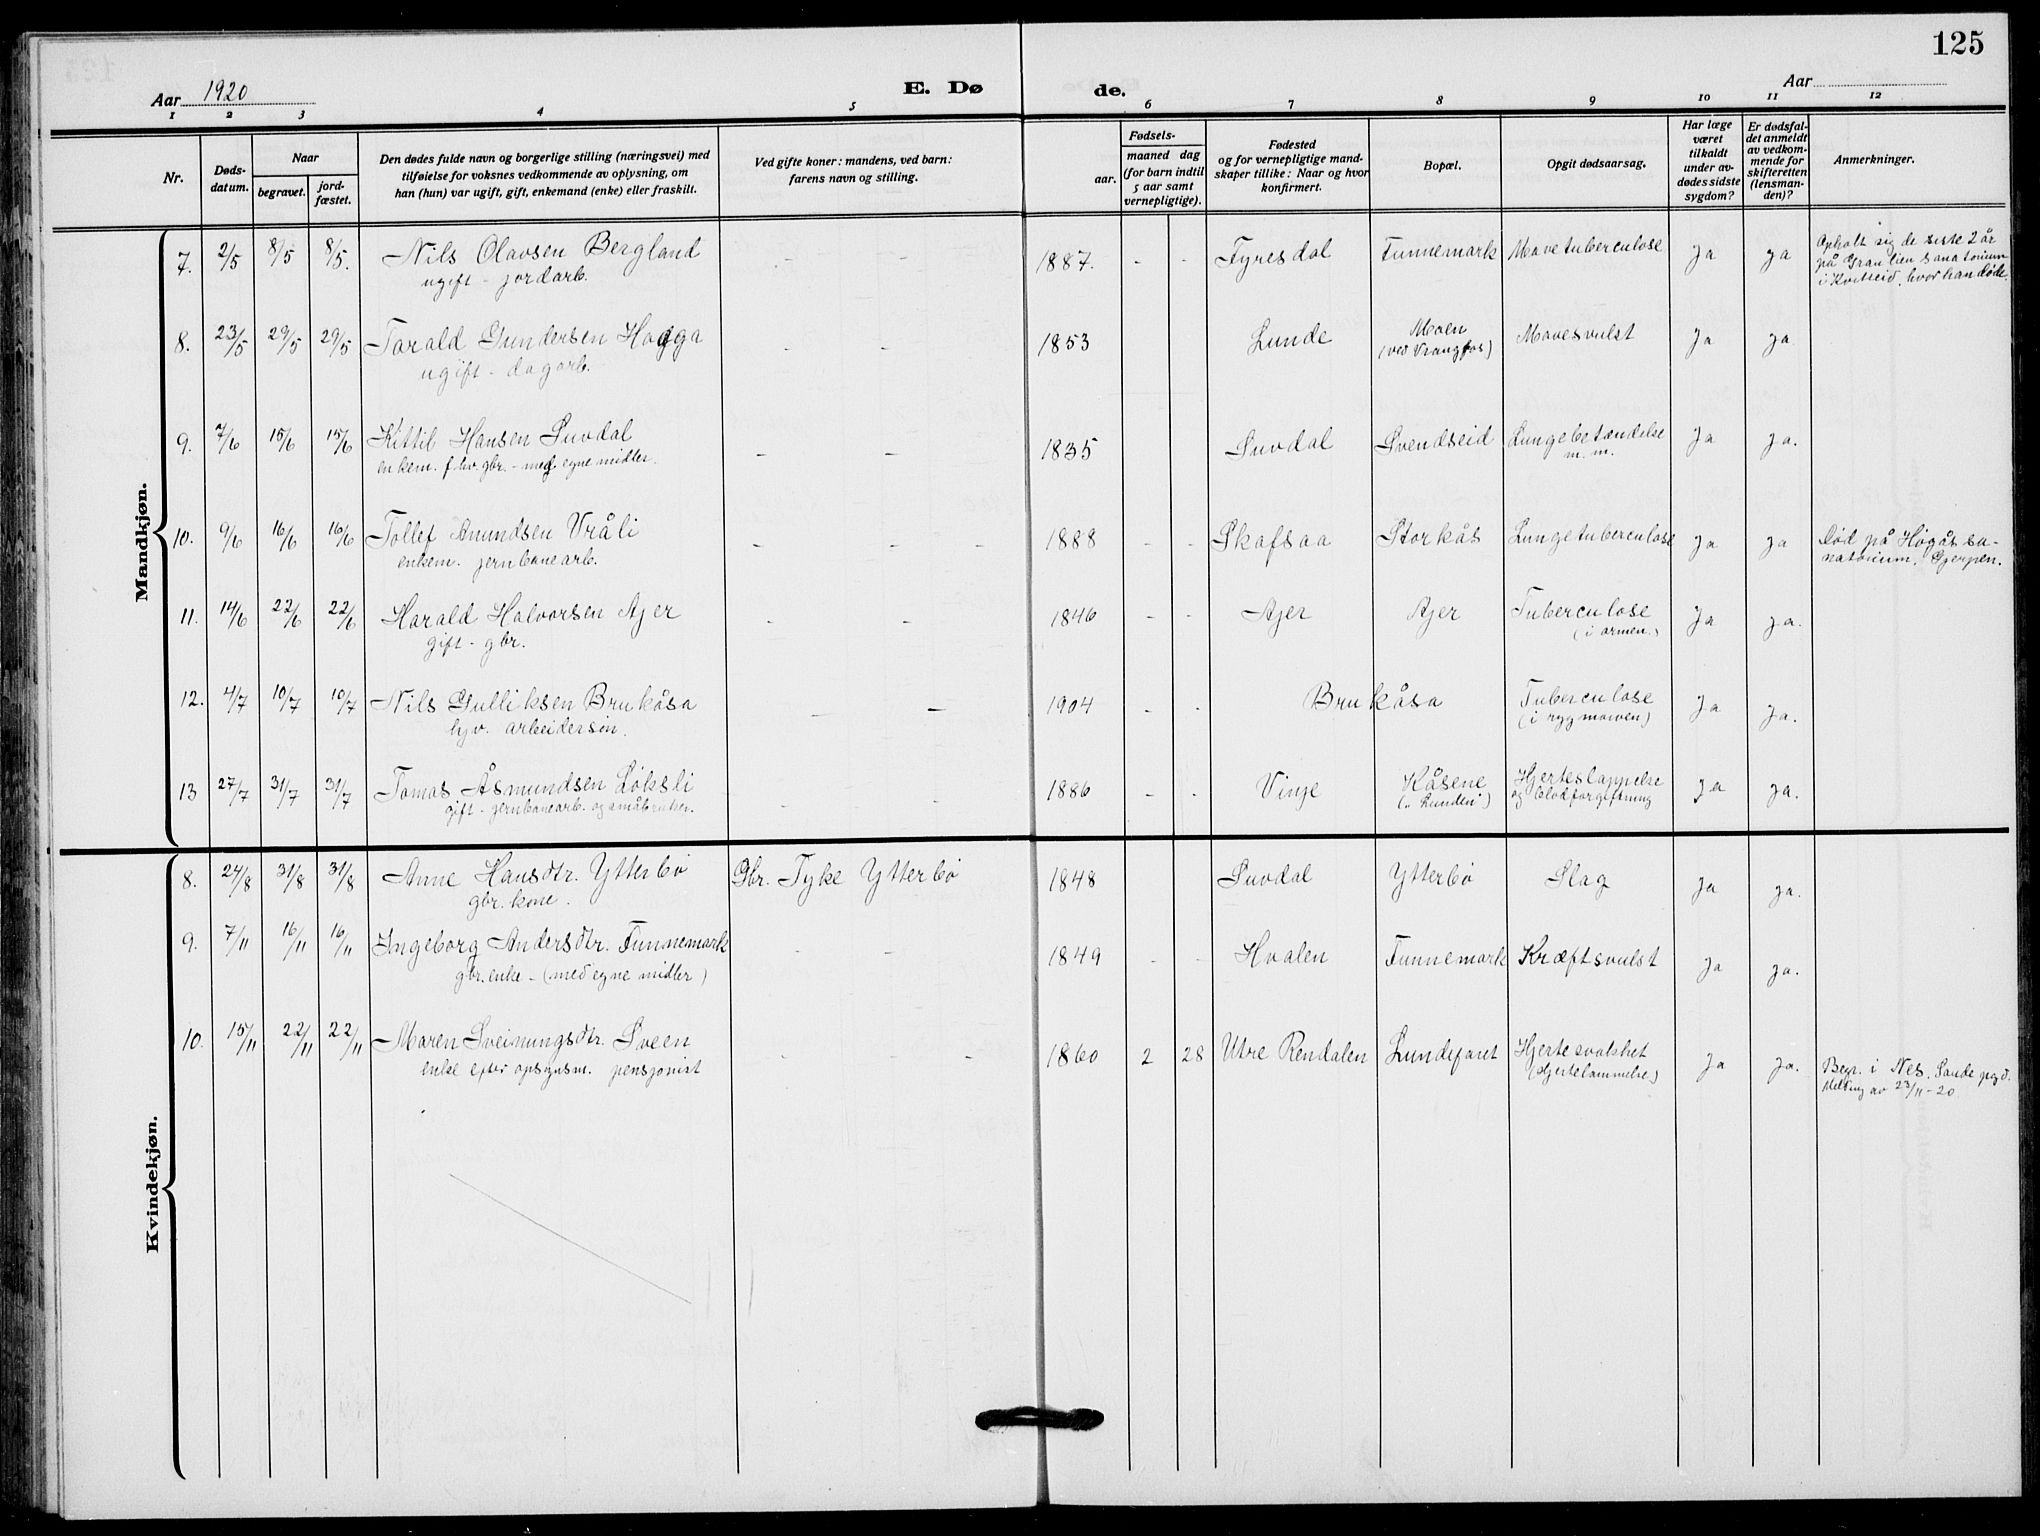 125
Aar 1920 E. Døde. Aar
1 2 3 4 5 6 7 8 9 10 11 12
Nr.
Dødsdatum.
Naar
begravet. jordfæstet.
Den dødes fulde navn og borgerlige stilling (næringsvei) med
tilføielse for voksnes vedkommende av oplysning, om
han (hun) var ugift, gift, enkemand (enke) eller fraskilt.
Ved gifte koner: mandens, ved barn:
farens navn og stilling.
Fødsels-
aar. maaned dag
(for barn indtil
5 aar samt
vernepligtige).
Fødested
og for vernepligtige mand-
skaper tillike: Naar og hvor
konfirmert.
Bopæl.
Opgit dødsaarsag.
Har læge
været
tilkaldt
under av-
dødes sidste
sygdom?
Er dødsfal-
det anmeldt
av vedkom-
mende for
skifteretten
(lensman-
den)?
Anmerkninger.
Mandkjøn.
7. 2/5 8/5 8/5. Nils Olavsen Bergland - - 1887. - - Fyresdal Funnemark Mavetuberculose Ja ja Opholt sig de siste 2 år
ugift - jordarb. på Granlien Sanatorium
i Kviteseid, hvor han døde.
8. 23/5 29/5 29/5 Torald Gundersen Hogga - - 1853 Lunde Moen Mavesvulst Ja ja
ugift - dagarb. (ved Vrangfos)
9. 7/6 15/6 15/6 Kittil Hansen Suvdal - - 1835 Suvdal Svendseid Lungebetændelse Ja ja.
enkem. f.hv. gbr. - med egne midler. m. m.
10. 9/6 16/6 16/6 Tollef Amundsen Vråli - - - 1888 - - Skafsaa Storkås Lungetuberculose Ja ja Død på Høgås sa-
enkem. jernbanearb. natorium, Gjerpen.
11. 14/6 22/6 22/6 Harald Halvorsen Ajer - - 1846 - - Ajer Ajer Tuberculose Ja ja.
gift - gbr. (i armen.)
12. 4/7 10/7 10/7 Nils Gulliksen Brukåsa - - 1904 - - Brukåsa Tuberculose Ja ja.
hjv. arbeidersøn. (i rygmarven)
13 27/7 31/7 31/7 Tomas Åsmundsen Løksli - - 1886 - - Vinje Kåsene Hjerteslappelse Ja ja.
gift - jernbanearb. og småbruker. (" Lunden") og blodforgiftning
Kvindekjøn.
8. 24/8 31/8 31/8 Anne Hansdtr. Ytterbö Gbr. Tyke Ytterbö 1848 Suvdal Ytterbö Slag Ja ja.
gbr. kone.
9. 7/11 16/11 16/11 Ingeborg Andersdtr. Funnemark - - 1849 - - Hvalen Funnemark Kræftsvulst Ja ja.
gbr. enke - (med egne midler)
10. 15/11 22/11 22/11 Maren Sveinungsdtr. Sveen - - - 1860 2 28 Utre Rendalen Lundefaret Hjertesvakhet Ja ja. Begr. i Nes. Saude pgd.
enke efter opsynsm. pensjonist (Hjertelammelse) Melding av 23/11-20